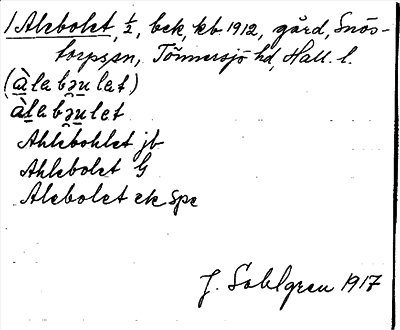 1 Alebolet, 1/2, bek. kb. 1912, gård, Snös-
torpssn, Tönnersjö hd, Hall. l.
(àlabəulet)
àlabəulet
Ahlebohlet jb
Ahlebolet G
Alebolet ek spec
J. Sahlgren 1917